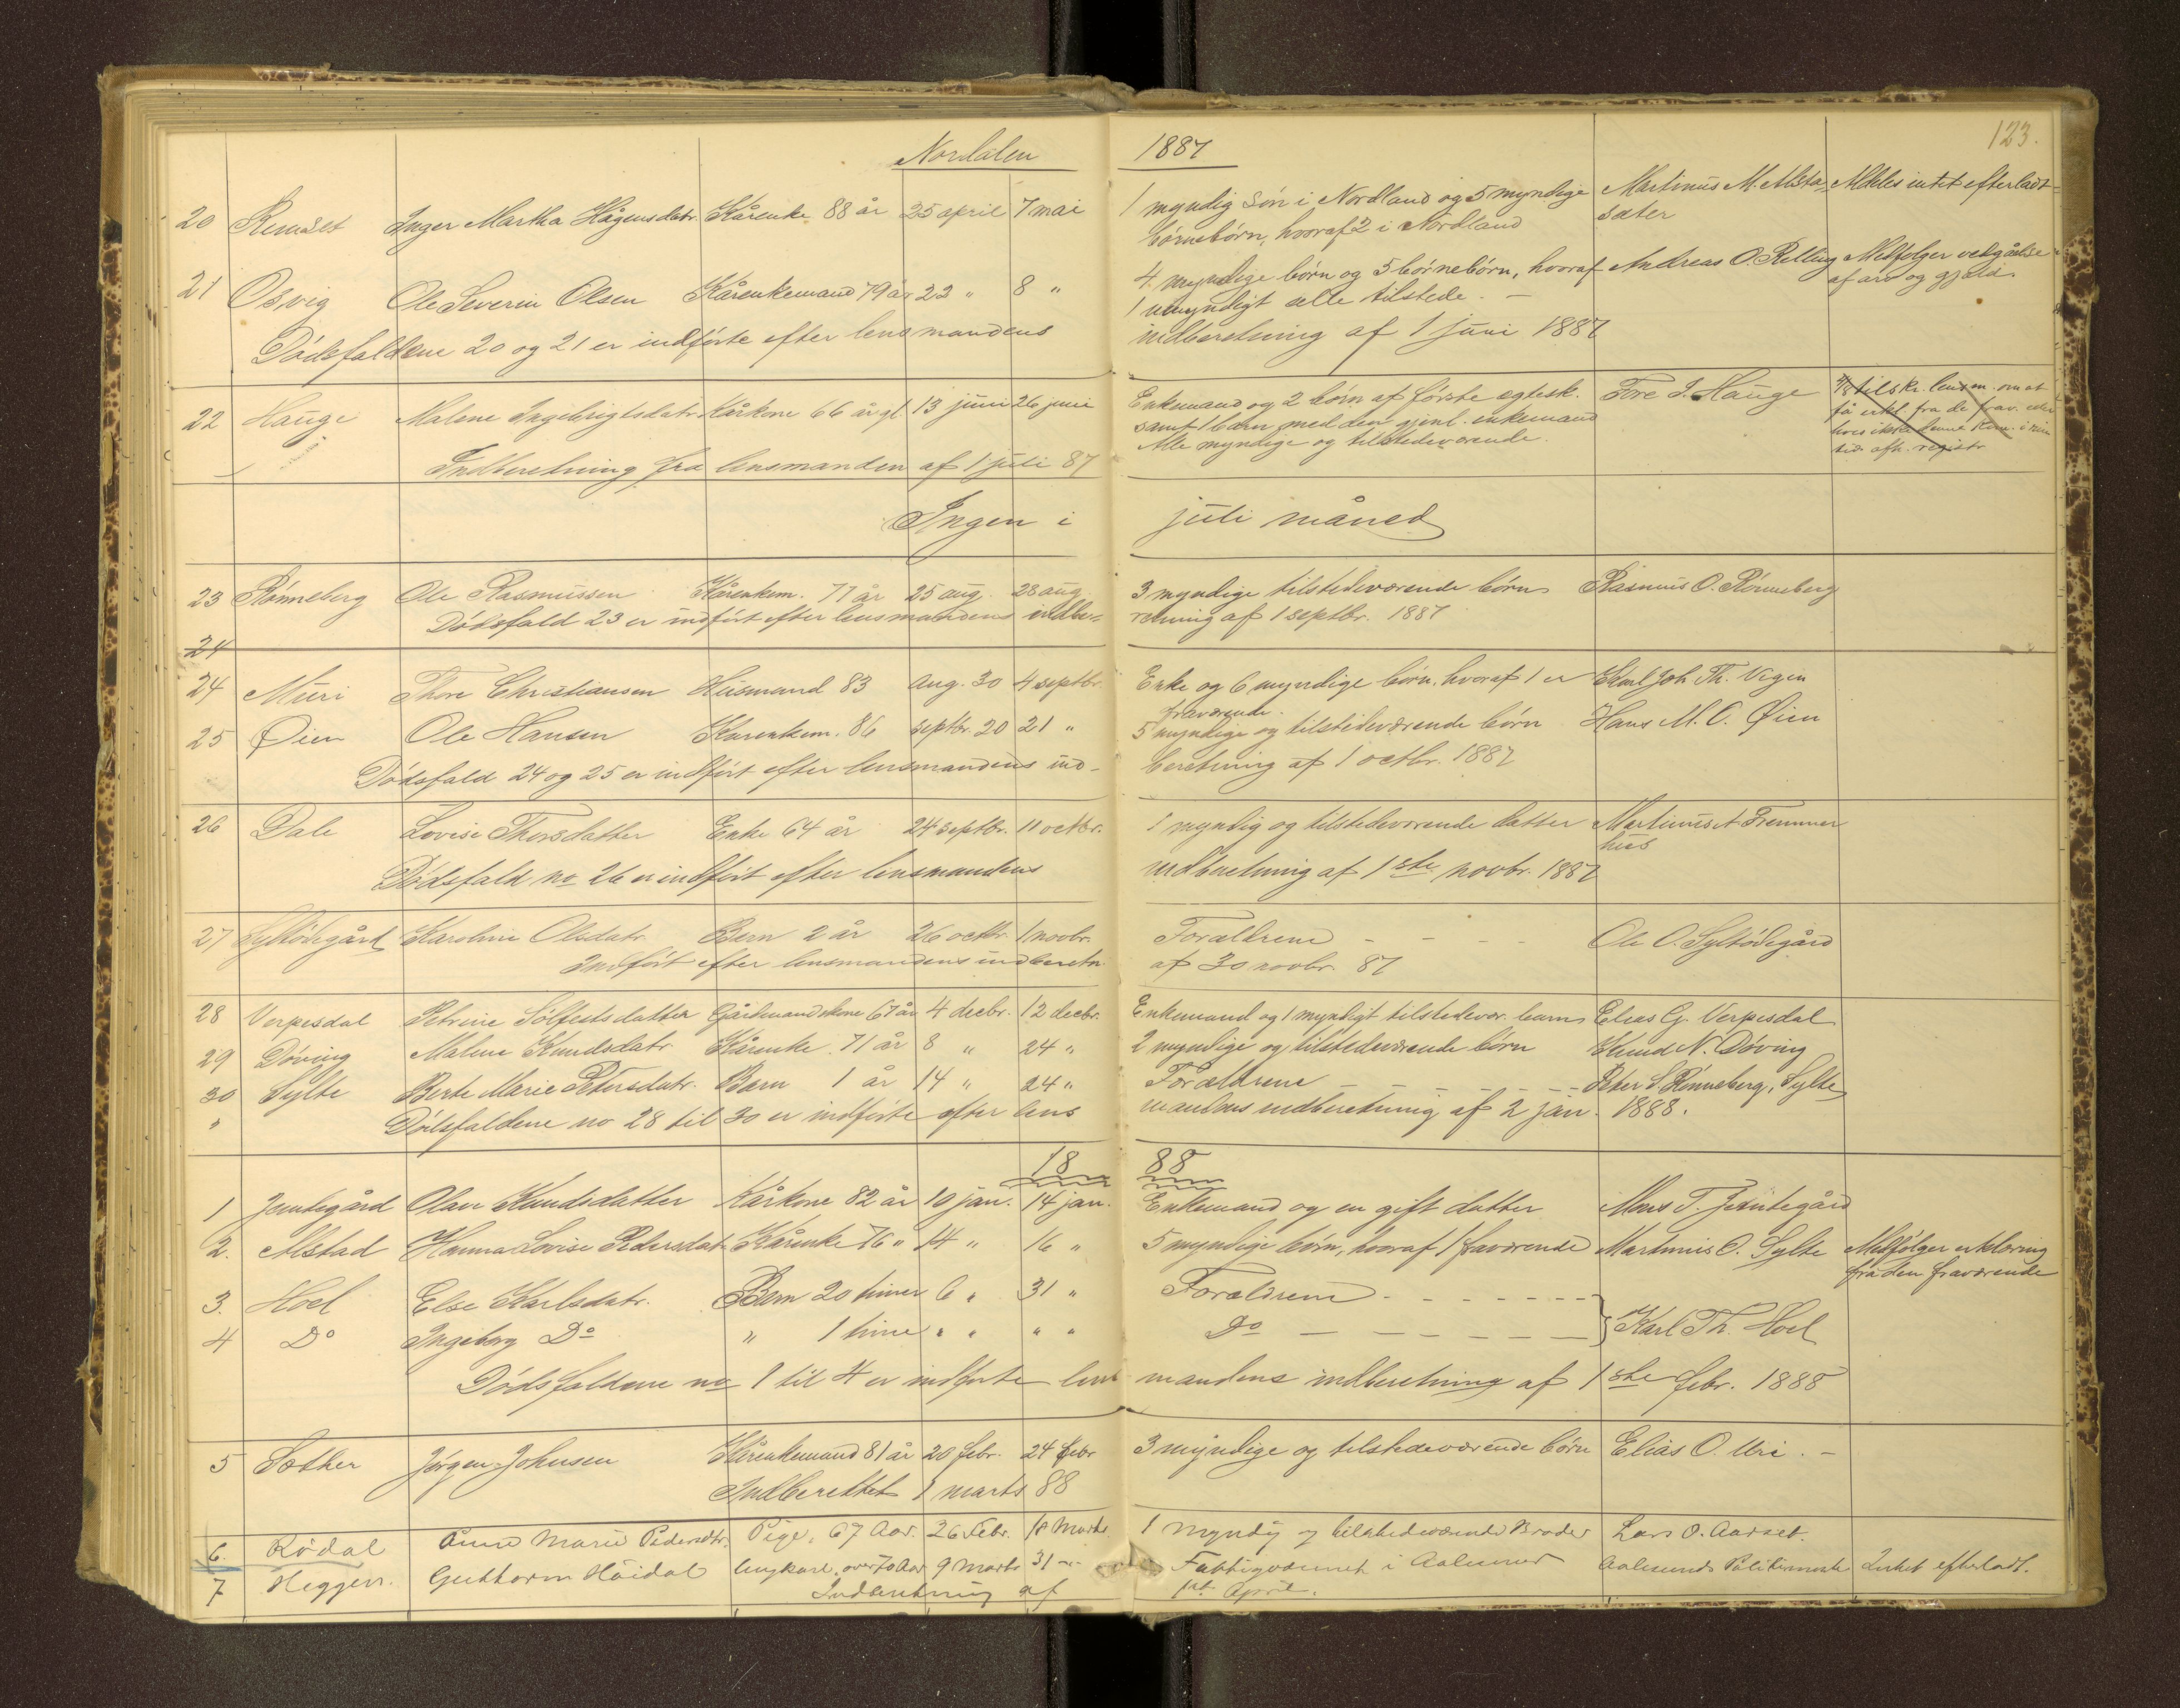 Nordalen 1887 123.
20 Remset Inger Martha Hågensdatr. Kårenke 88 år 25 april 7 mai 1 myndig søn i Nordland og 5 myndige Martinus M. Alsta- Aldeles intet efterladt
børnebørn, hvoraf 2 i Nordland sæter
21 Osvig Ole Severin Olsen Kårenkemand 79 år 22 " 8 " 4 myndige børn og 5 børnebørn, hvoraf Andreas O. Relling Medfølger vedgåelse
1 umyndigt alle tilstede. — af arv og gjæld
Dødsfaldene 20 og 21 er indførte efter lensmandens indberetning af 1 juni 1887
22 Hauge Malene Ingebrigtsdatr. Kårkone 66 år gl. 13 juni 26 juni Enkemand og 2 børn af første egtesk. Tore J. Hauge tilskr. lensm. om at
samt 1 barn med den gjenl. enkemand få erkl. fra de frav.
Alle myndige og tilstedeværende. hvis ikke denne kom. i min
Indberetning fra lensmanden af 1 juli 87 tid afh. registr
Ingen i juli måned
23 Rønneberg Ole Rasmussen Kårenkem. 77 år 25 aug. 28 aug 3 myndige tilstedeværende børn Rasmus O. Rønneberg
Dødsfald 23 er indført efter lensmandens indbe- retning af 1 septbr. 1887
24
24 Muri Thore Christiansen Husmand 83 aug. 30 4 septbr. Enke og 6 myndige børn, hvoraf 1 er Karl Joh. Th. Vigen
fraværende.
25 Øien Ole Hansen Kårenkem. 86 septbr. 20 21 " 5 myndige og tilstedeværende børn Hans M. O. Øien
Dødsfald 24 og 25 er indført efter lensmandens ind- beretning af 1 octbr. 1887
26 Dale Lovise Thorsdatter Enke 64 år 24 septbr. 11 octbr. 1 myndig og tilstedeværende datter Martinus A Fremmer
hus
Dødsfald no 26 er indført efter lensmandens indberetning af 1ste novbr. 1887
27 Syltødegård Karoline Olsdatr. Barn 2 år 26 octbr. 1 novbr. Forældrene - - - - Ole O. Syltødegård
Indført efter lensmandens indberetn. af 30 novbr. 87
28 Verpesdal Petrine Sølfestsdatter Gårdmandskone 67 år 4 decbr. 12 decbr. Enkemand og 1 myndigt tilstedevær. barn Elias G. Verpesdal
29 Døving Malene Knudsdatr. Kårenke 71 år 8 " 24 " 2 myndige og tilstedeværende børn Knud N. Døving
30 Sylte Berte Marie Petersdatr. Barn 1 år 14 " 24 " Forældrene - - - - - Peter S. Rønneberg, Sylte
" Dødsfaldene no 28 til 30 er indførte efter lens mandens indberetning af 2 jan. 1888.
18 88
1 Jemtegård Olave Knudsdatter Kårkone 82 år 10 jan. 14 jan. Enkemand og en gift datter Mons T. Jemtegård
2. Alstad Hanna Lovise Pedersdatr. Kårenke 76 " 14 " 16 " 5 myndige børn, hvoraf 1 fraværende Martinus O. Sylte Medfølger erklæring
fra den fraværende
3. Hoel Else Karlsdatr. Barn 20 timer 6 " 31 " Forældrene - - - - - -
4 Do Ingeborg Do " 1 time " " " " Do - - - - - - Karl Th. Hoel
Dødsfaldene no 1 til 4 er indførte lens mandens indberetning af 1ste febr. 1888
5 Sæther Jørgen Johnsen Kårenkemand 81 år 20 febr. 24 febr 3 myndige og tilstedeværende børn Elias O. Uri. —
Indberettet 1 marts 88
6. Rødal Anne Marie Pedersdtr. Pige, 67 Aar. 26 Febr. 18 Marts 1 myndig og tilstedeværende Broder Lars O. Aarset.
7 Heggen. Gutthorm Höidal Ungkarl, over 70 Aar 9 Marts 31 — Fattigvæsenet i Aalesund Aalesunds Politimester Intet efterladt.
Indberetning af 1ste April.